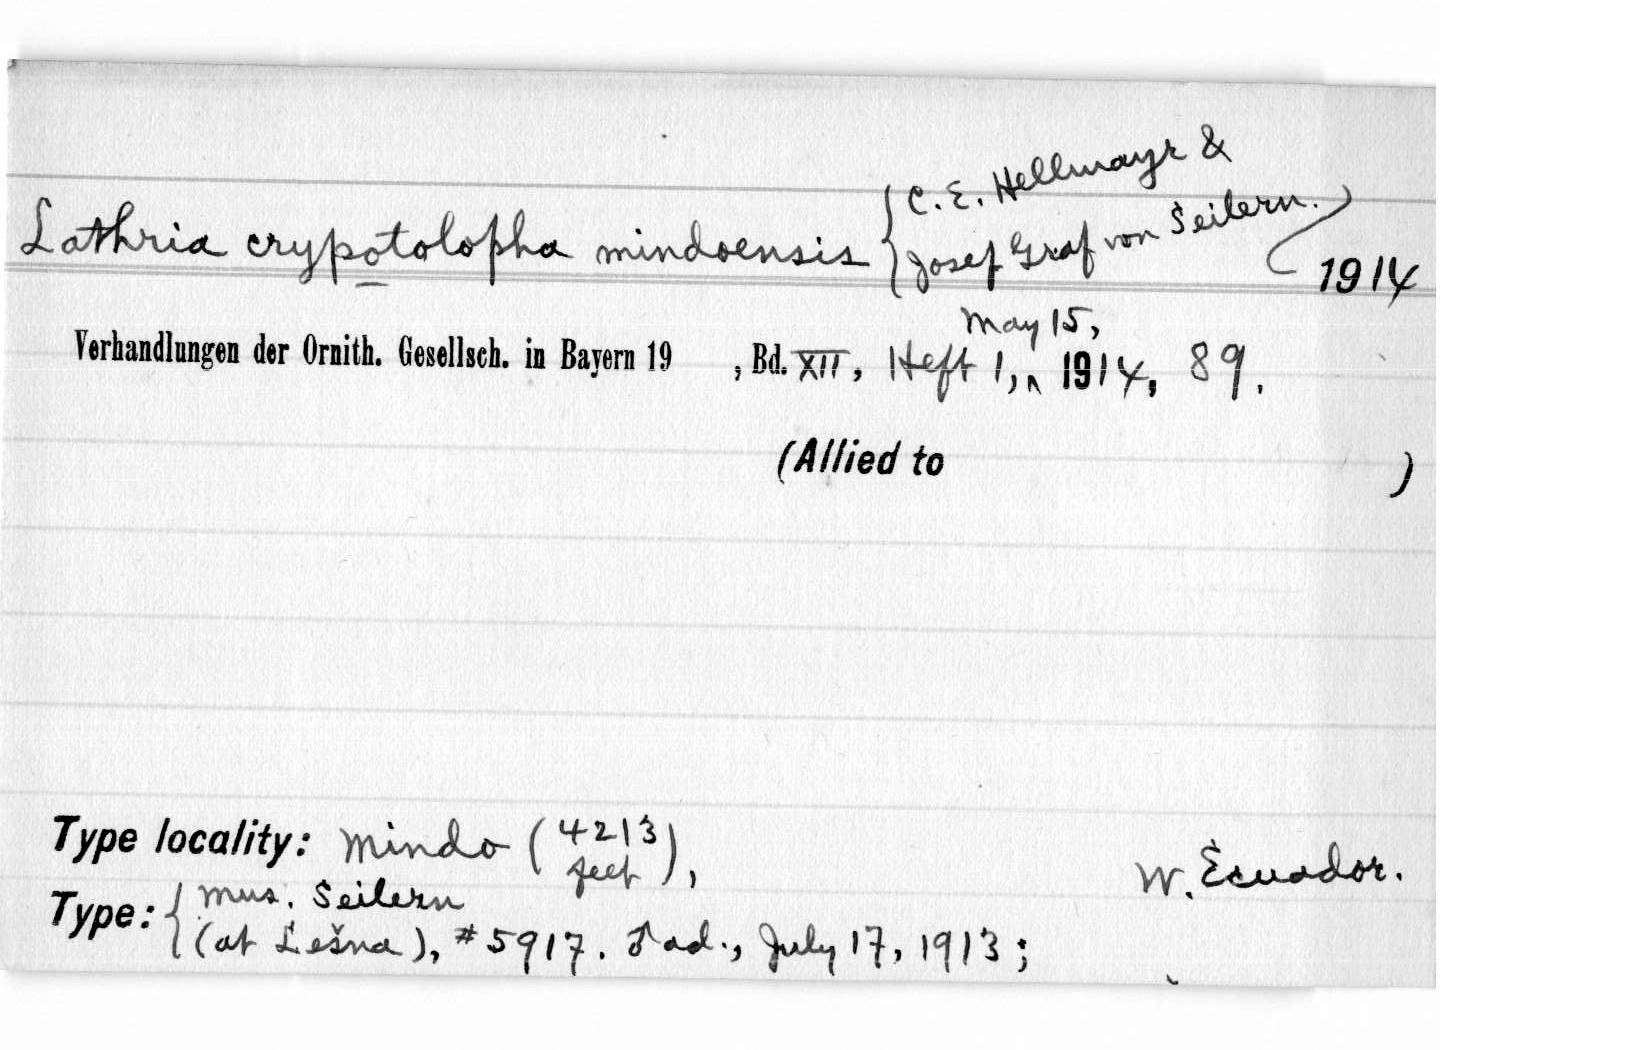 Lathria crypotolopha mindoensis { C. E. Hellmayr &
Josef Graf von Seilern. ) 1914
Verhandlungen der Ornith. Gesellsch. in Bayern 19 , Bd. XII, Heft 1, ^ May 15, 1914, 89.
(Allied to )
Type locality: Mindo (4213 feet), W. Ecuador.
Type: { Mus. Seilern
(at Lešna), #5917. ♂ ad., July 17, 1913;